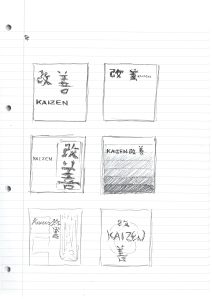 改 善
KAIZEN
改 善 KAIZEN
KAIZEN 改
善
KAIZEN 改善
Kaizen 改
善
改
KAIZEN
善